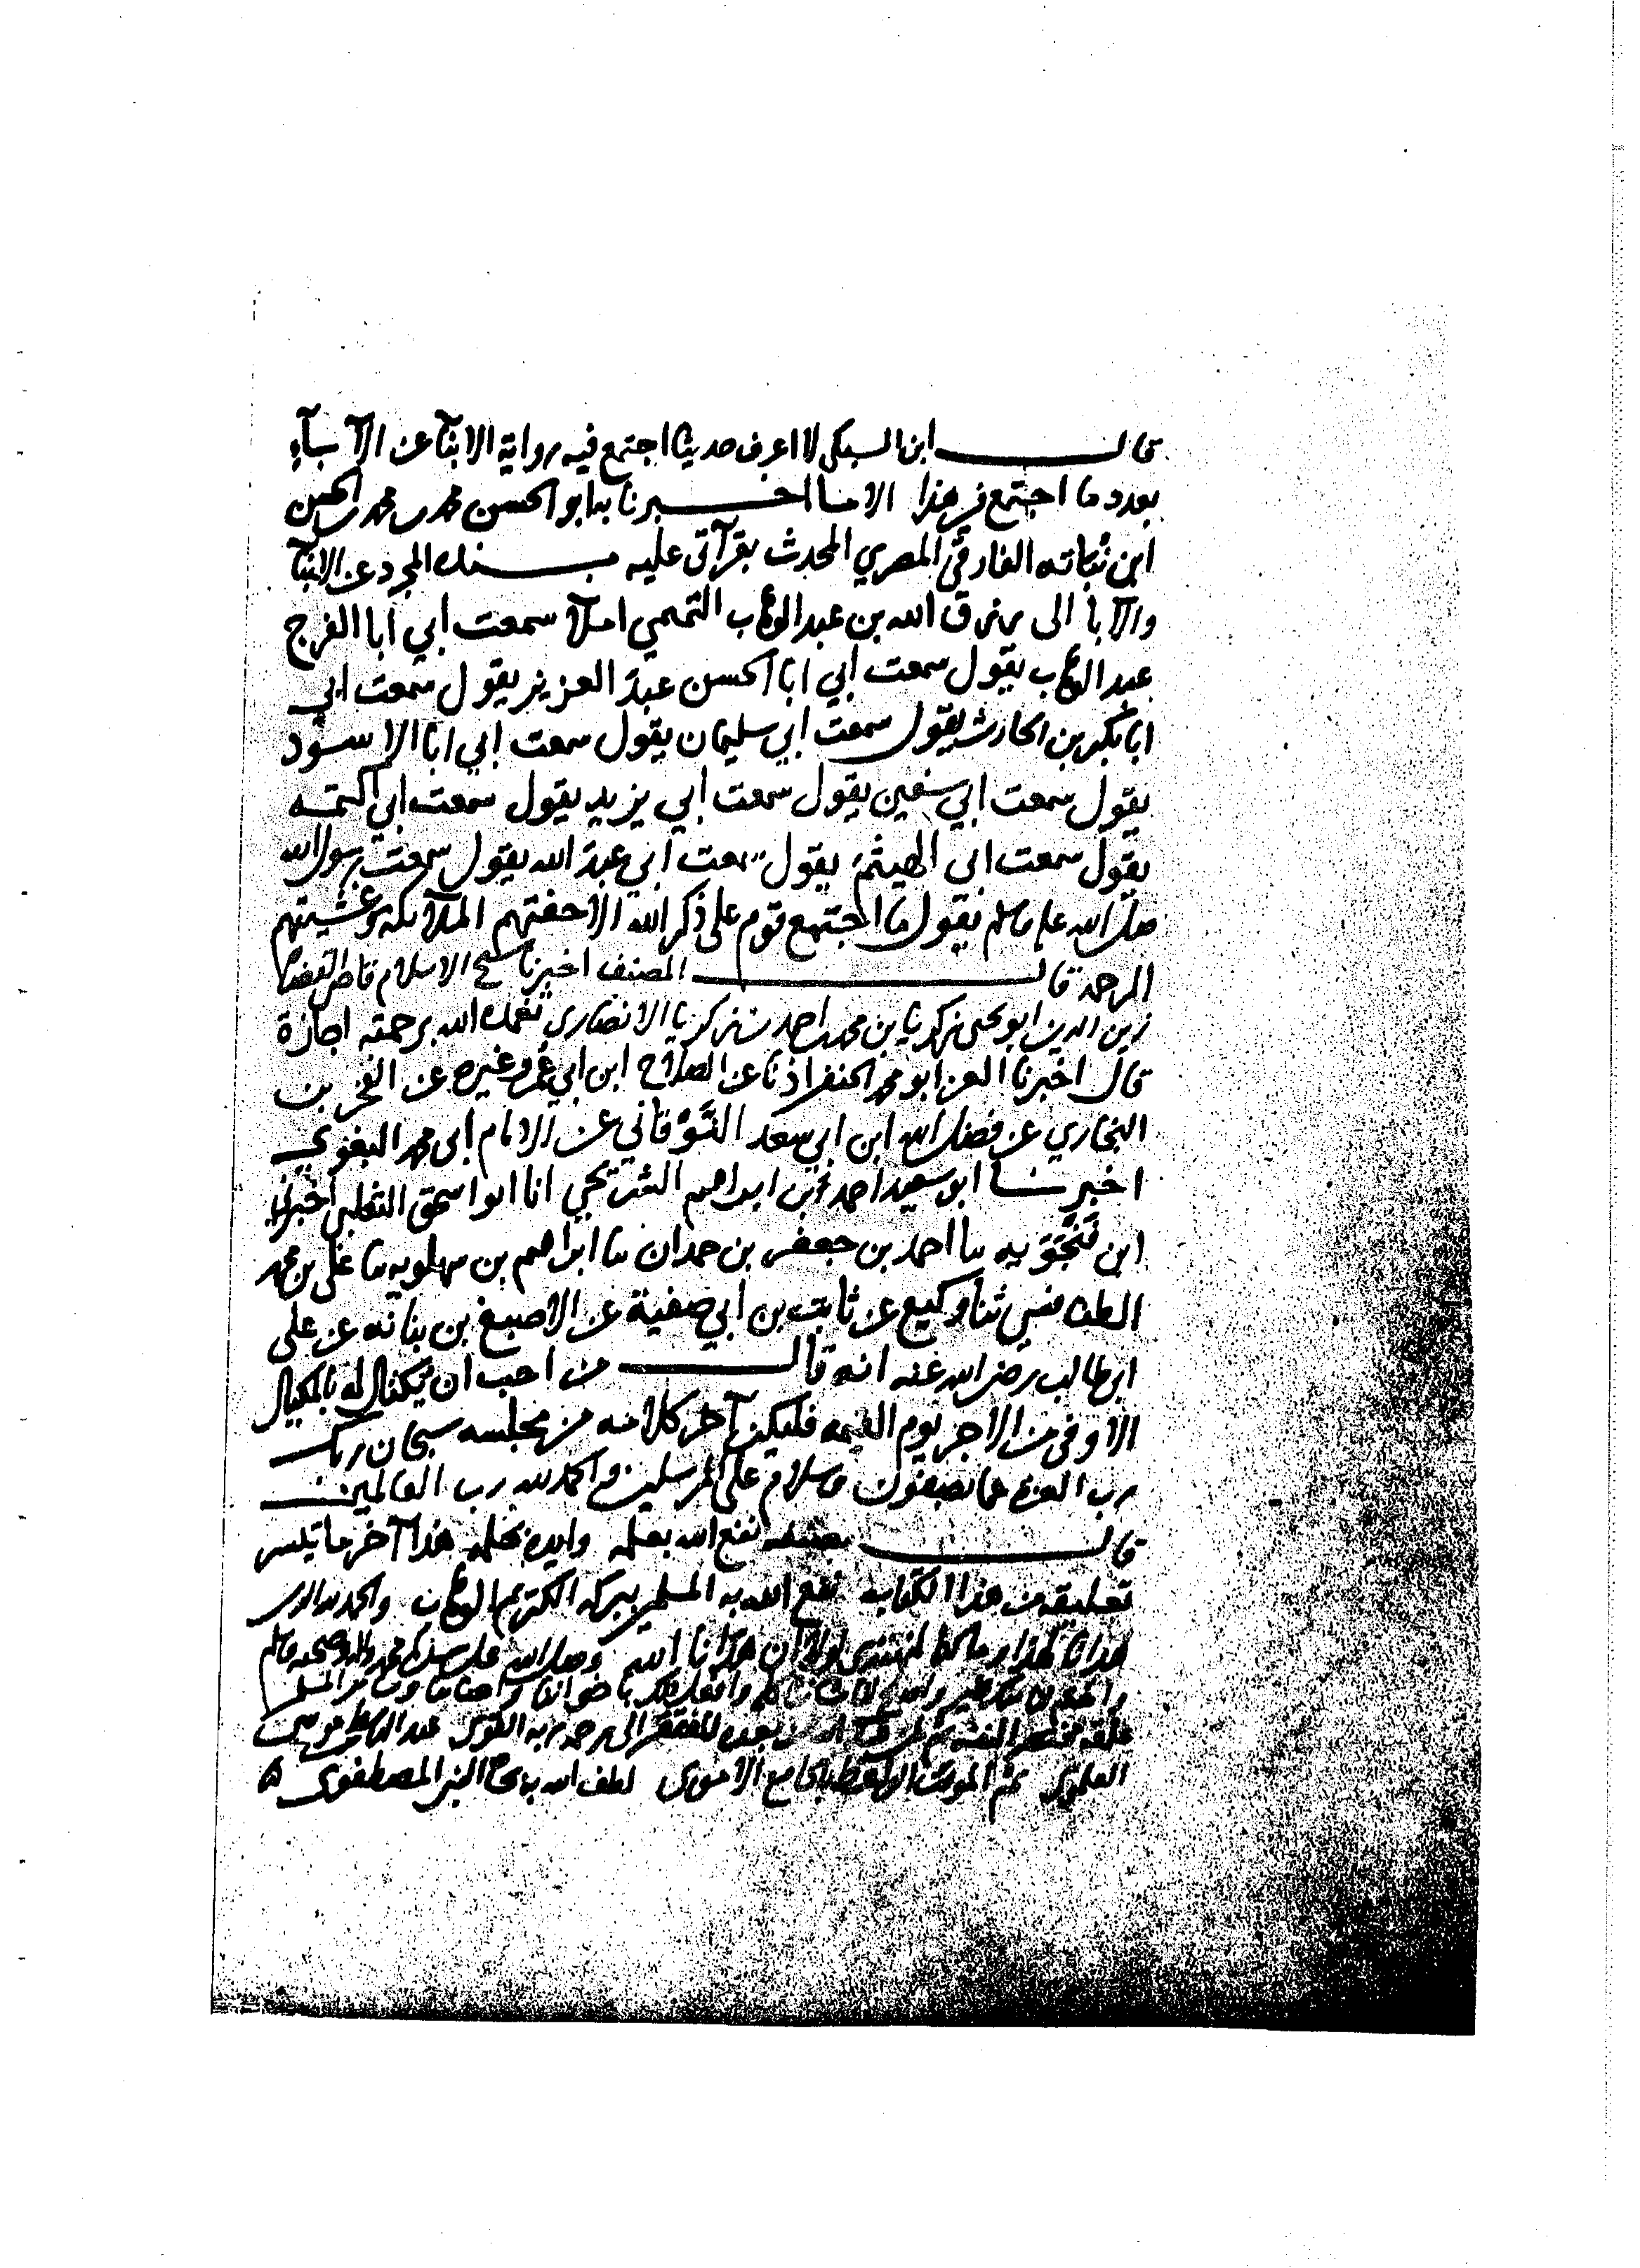 قال ابن السبكي لا اعرف حديثا اجتمع فيه رواية الابنآ عن الآبآء
بعدد ما اجتمع في هذا الا ما اخبرنا به ابو الحسن محمد بن محمد بن الحسن
ابن نباته الفارقي المصري المحدث بقرآتي عليه بسنده المجرد عن الابنآ
والآبا الى رزق الله بن عبد الوهاب التميمي املآ سمعت ابي ابا الفرج
عبد الوهاب يقول سمعت ابي ابا الحسن عبد العزيز يقول سمعت ابي
ابا بكر بن الحارث يقول سمعت ابي سليمان يقول سمعت ابي ابا الاسود
يقول سمعت ابي سفين يقول سمعت ابي يزيد يقول سمعت ابي اكتمه
يقول سمعت ابي الهيثم يقول سمعت ابي عبد الله يقول سمعت رسول الله
صلى الله عليه وسلم يقول ما اجتمع قوم على ذكر الله الا حفتهم الملآئكة وغشيتهم
الرحمة قال المصنف اخبرنا شيخ الاسلام قاضي القضاة
زين الدين ابو يحيى زكريا بن محمد بن احمد بن زكريا الانصاري تغمده الله برحمته اجازة
قال اخبرنا العز ابو محمد الحنفي اذنا عن الصلاح ابن ابي عمر وغيره عن الفخر بن
البخاري عن فضل الله ابن ابي سعد النوقاني عن الامام ابي محمد البغوي
اخبرنا ابو سعيد احمد بن ابراهيم الشريحي انا ابو اسحق الثعلبي اخبرني
ابن فنجويه نا احمد بن جعفر بن حمدان نا ابراهيم بن سهلويه نا علي بن محمد
الطنافسي ثنا وكيع عن ثابت بن ابي صفية عن الاصبغ بن نباته عن علي
ابي طالب رضي الله عنه انه قال من احب ان يكتال له بالمكيال
الاوفى من الاجر يوم القيمه فليكن آخر كلامه من مجلسه سبحان ربك
رب العزة عما يصفون وسلام على المرسلين والحمد لله رب العالمين
قال مصنفه نفع الله بعلمه وايده بحلمه هذا آخر ما تيسر
تعليقه من هذا الكتاب نفع الله به المسلمين ببركة الكريم الوهاب والحمد لله الذي
هدانا لهذا وما كنا لنهتدي لولا ان هدانا الله وصلى الله على سيدنا محمد وآله وصحبه وسلم
علقه لنفسه ثم لمن من بعده الفقير الى رحمة ربه القوي عبد الباسط بن موسى
العلموي ثم الموقت الواعظ بالجامع الاموي لطف الله به بجاه النبي المصطفوي